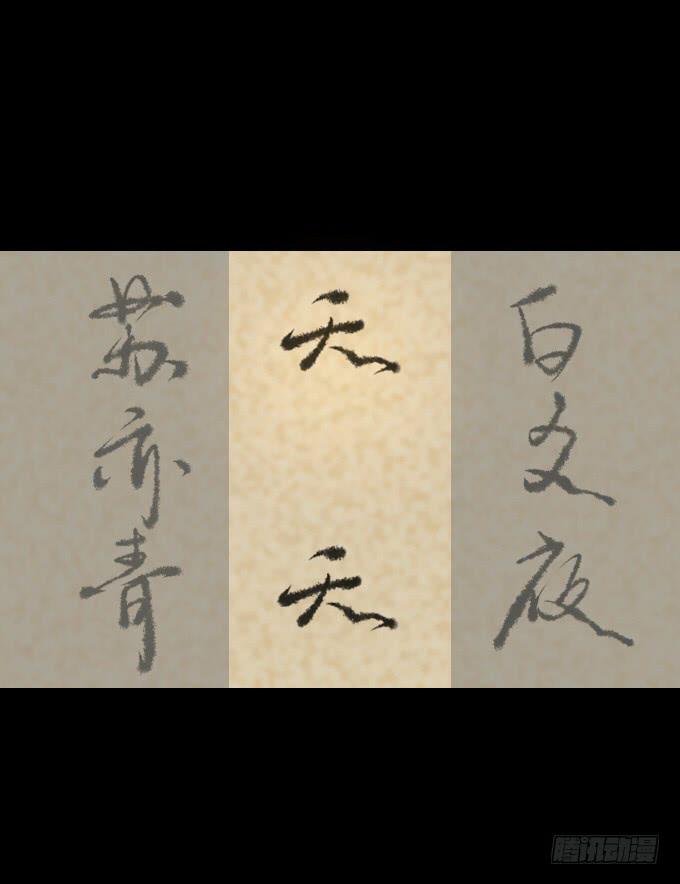 白夜夜
天
天
苏亦青
腾讯动漫